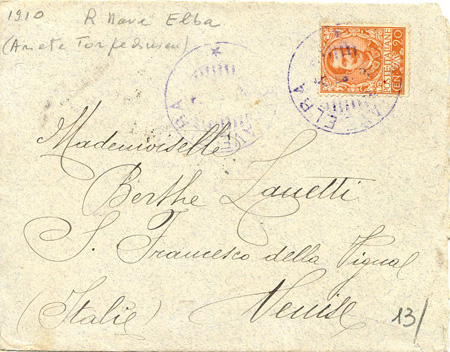 1910 R Nave Elba
(Ariete Torpediniere)
POSTE ITALIANE
CEN. 20
NAVE ELBA
NAVE ELBA
Mademoiselle
Berthe Zanetti
S. Francesco della Vigna
(Italie) Venise
13/